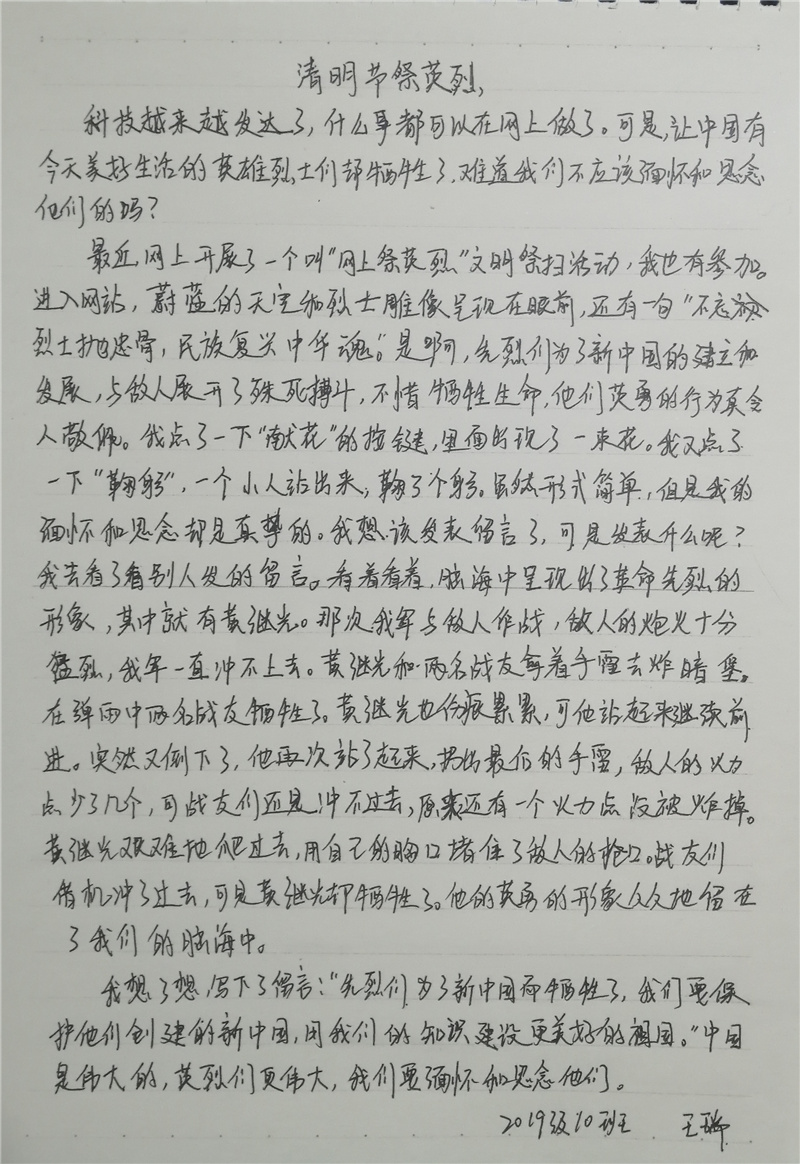 清明节祭英烈
科技越来越发达了，什么事都可以在网上做了。可是，让中国有
今天美好生活的英雄烈士们却牺牲了，难道我们不应该缅怀和思念
他们的吗？
最近，网上开展了一个叫“网上祭英烈”文明祭扫活动，我也有参加。
进入网站，蔚蓝的天空和烈士雕像呈现在眼前，还有一句“不忘
烈士抛忠骨，民族复兴中华魂。”是啊，先烈们为了新中国的建立和
发展，与敌人展开了殊死搏斗，不惜牺牲生命，他们英勇的行为真令
人敬佩。我点了一下“献花”的按键，里面出现了一束花。我又点了
一下“鞠躬”，一个小人站出来，鞠了个躬。虽然形式简单，但是我的
缅怀和思念却是真挚的。我想该发表留言了，可是发表什么呢？
我去看了看别人发的留言。看着看着，脑海中呈现出了革命先烈的
形象，其中就有黄继光。那次我军与敌人作战，敌人的炮火十分
猛烈，我军一直冲不上去。黄继光和两名战友拿着手雷去炸暗堡。
在弹雨中两名战友牺牲了。黄继光也伤痕累累，可他站起来继续前
进。突然又倒下了，他再次站了起来，扔出最后的手雷，敌人的火力
点少了几个，可战友们还是冲不过去，原来还有一个火力点没被炸掉。
黄继光艰难地爬过去，用自己的胸口堵住了敌人的枪口。战友们
借机冲了过去，可是黄继光却牺牲了。他的英勇的形象久久地留在
了我们的脑海中。
我想了想，写下了留言：“先烈们为了新中国而牺牲了，我们要保
护他们创建的新中国，用我们的知识建设更美好的祖国。”中国
是伟大的，英烈们更伟大，我们要缅怀和思念他们。
2019级10班王　王